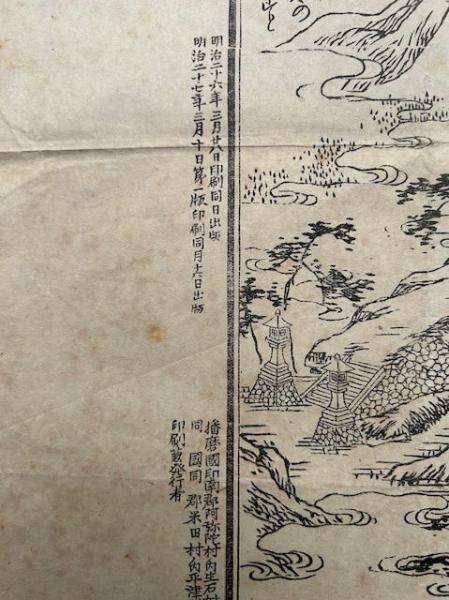 の
明治二十六年三月廿八日印刷同日出版
明治二十七年三月十日第二版印刷同月十六日出版
播磨國印南郡阿弥陀村内生石村
同 國同 郡米田村内平津
印刷兼發行者